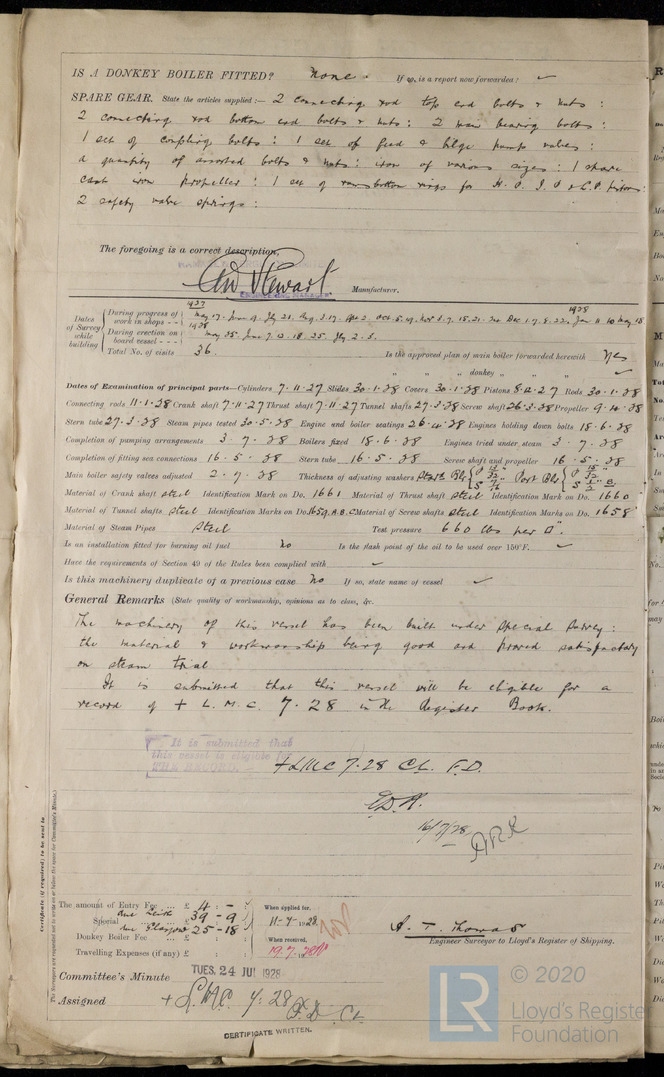 IS A DONKEY BOILER FITTED? None. If so, is a report now forwarded? ✓
SPARE GEAR. State the articles supplied:— 2 connecting rod top end bolts & nuts :
2 connecting rod bottom end bolts & nuts : 2 main bearing bolts :
1 set of coupling bolts : 1 set of feed & bilge pump valves :
a quantity of assorted bolts & nuts : iron of various sizes : 1 spare
cast iron propeller : 1 set of ramsbottom rings for H.P. I.P & L.P. pistons
2 safety valve springs :
The foregoing is a correct description,
Stewart Manufacturer.
ENGINEERING MANAGER
Dates of Survey while building
1927 1928
During progress of work in shops - - May 17. June 9. Jly 21. Aug. 3. 17. Oct 5. 19. Nov 2. 7. 15. 21. Dec 1. 7. 8. 22. Jan 11 May 18
1928
During erection on board vessel - - - May 25. June 7. 12. 18. 25. Jly 2. 3.
Total No. of visits 36. Is the approved plan of main boiler forwarded herewith Yes
" " " donkey " " " ✓
Dates of Examination of principal parts—Cylinders 7.11.27 Slides 30.1.28 Covers 30.1.28 Pistons 8.12.27 Rods 30.1.28
Connecting rods 11.1.28 Crank shaft 7.11.27 Thrust shaft 7.11.27 Tunnel shafts 27.3.28 Screw shaft 26.3.28 Propeller 9.4.28
Stern tube 27.3.28 Steam pipes tested 30.5.28 Engine and boiler seatings 26.4.28 Engines holding down bolts 18.6.28
Completion of pumping arrangements 3.7.28 Boilers fixed 18.6.28 Engines tried under steam 3.7.28
Completion of fitting sea connections 16.5.28 Stern tube 16.5.28 Screw shaft and propeller 16.5.28
Main boiler safety valves adjusted 2.7.28 Thickness of adjusting washers Starbd Blr P S Port Blr P S
Material of Crank shaft Steel Identification Mark on Do. 1661 Material of Thrust shaft Steel Identification Mark on Do. 1660
Material of Tunnel shafts Steel Identification Marks on Do. 1659.A.B.C. Material of Screw shafts Steel Identification Marks on Do. 1658
Material of Steam Pipes Steel Test pressure 660 lbs per □".
Is an installation fitted for burning oil fuel No Is the flash point of the oil to be used over 150°F. ✓
Have the requirements of Section 49 of the Rules been complied with ✓
Is this machinery duplicate of a previous case No If so, state name of vessel ✓
General Remarks (State quality of workmanship, opinions as to class, &c.
The machinery of this vessel has been built under Special Survey :
the material & workmanship being good and proved satisfactory
on steam trial
It is submitted that this vessel will be eligible for a
record of + L.M.C. 7.28 in the Register Book.
It is submitted that
this vessel is eligible for
THE RECORD.
+ LMC 7.28 CL. F.D.
16/7/28
Certificate (if required) to be sent to
The Surveyors are requested not to write on or below the space for Committee's Minute.
The amount of Entry Fee ... £ 4 : - : When applied for,
Special due Leith £ 39 - 9 11-7-1928
due Glasgow 25 - 18
Donkey Boiler Fee ... £ When received,
Travelling Expenses (if any) £ 19.7.1928
A. T. Thomas
Engineer Surveyor to Lloyd's Register of Shipping.
Committee's Minute TUES. 24 JUL 1928
Assigned + L.M.C. 7.28 F.D. CL.
CERTIFICATE WRITTEN.
LR
© 2020
Lloyd's Register
Foundation